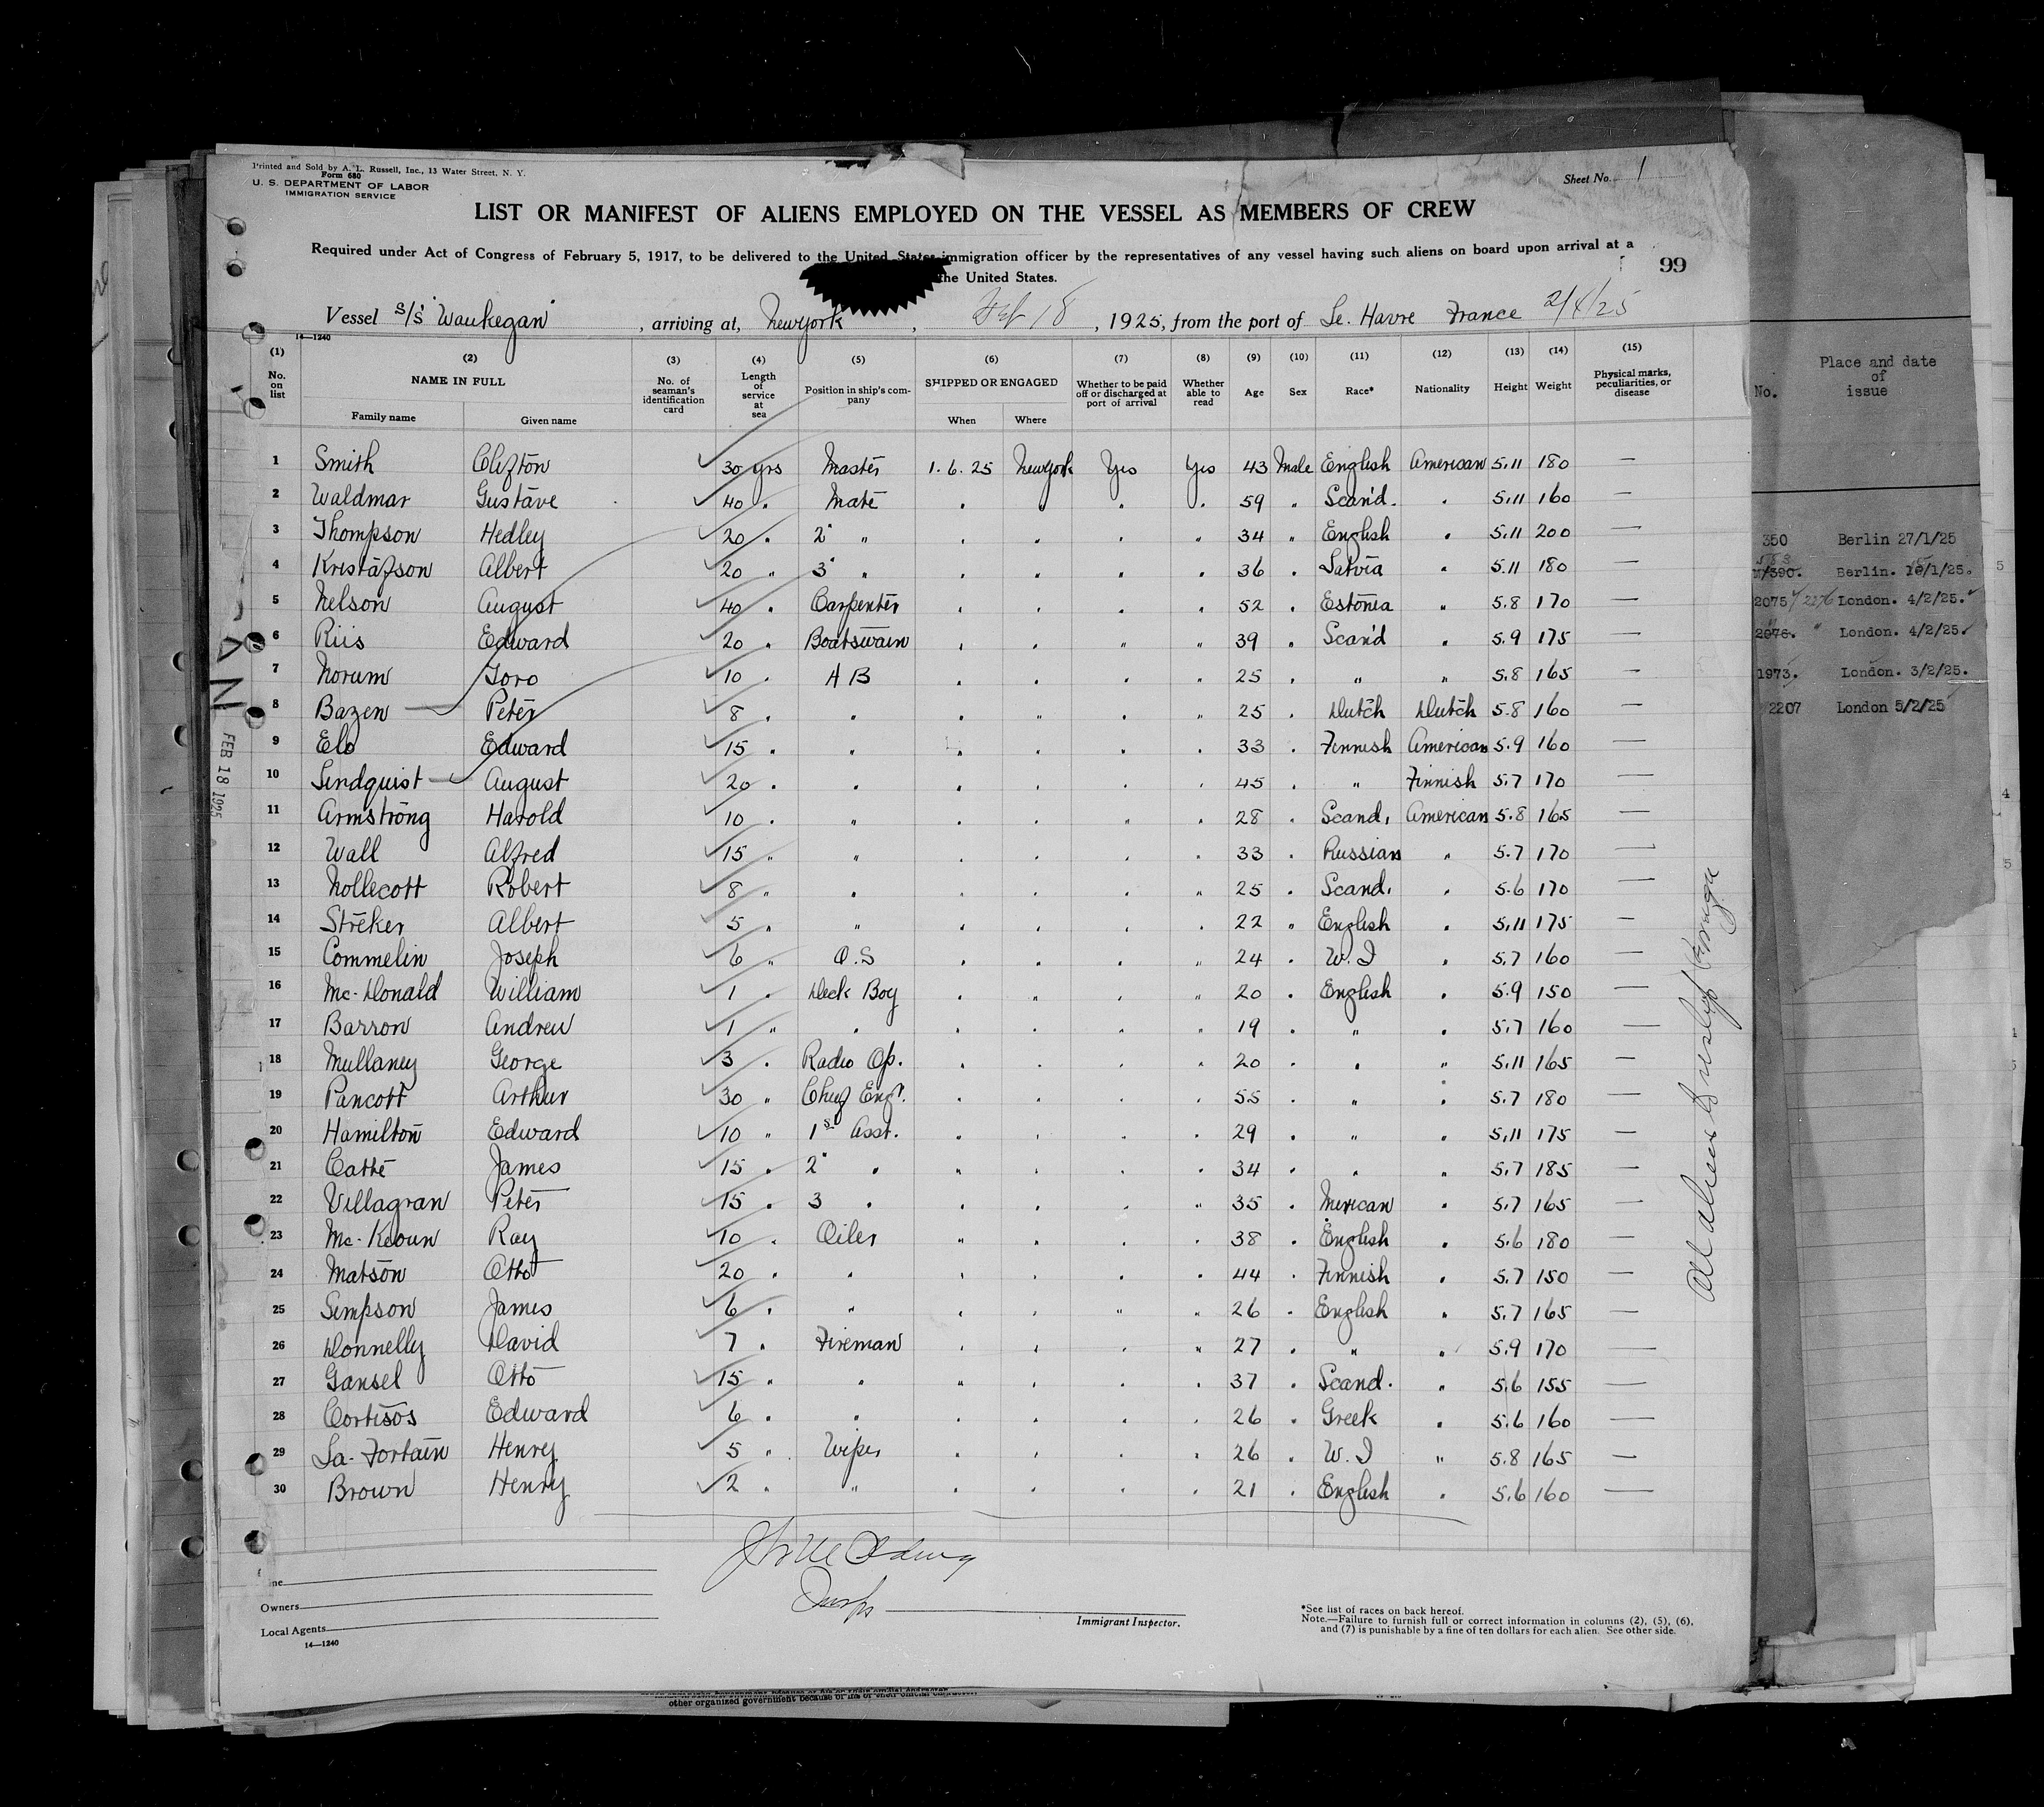 Printed and Sold by A. L. Russell, Inc., 13 Water Street, N. Y.
Form 680
U. S. DEPARTMENT OF LABOR
IMMIGRATION SERVICE
Sheet No. 1
LIST OR MANIFEST OF ALIENS EMPLOYED ON THE VESSEL AS MEMBERS OF CREW
Required under Act of Congress of February 5, 1917, to be delivered to the United States immigration officer by the representatives of any vessel having such aliens on board upon arrival at a
the United States.
99
Vessel s/s "Waukegan", arriving at, New York, Feb 18, 1925, from the port of Le. Havre France 2/4/25
14—1240
(1) (2) (3) (4) (5) (6) (7) (8) (9) (10) (11) (12) (13) (14) (15)
No. on list NAME IN FULL No. of seaman's identification card Length of service at sea Position in ship's company SHIPPED OR ENGAGED Whether to be paid off or discharged at port of arrival Whether able to read Age Sex Race* Nationality Height Weight Physical marks, peculiarities, or disease
Family name Given name When Where
1 Smith Clifton 30 yrs Master 1.6.25 New York Yes Yes 43 Male English American 5.11 180 —
2 Waldmar Gustave 40 " Mate " " " " 59 " Scan'd. " 5.11 160 —
3 Thompson Hedley 20 " 2" " " " " " 34 " English " 5.11 200 —
4 Kristafson Albert 20 " 3" " " " " " 36 " Latvia " 5.11 180 —
5 Nelson August 40 " Carpenter " " " " 52 " Estonia " 5.8 170 —
6 Riis Edward 20 " Boatswain " " " " 39 " Scan'd " 5.9 175 —
7 Norum Toro 10 " A B " " " " 25 " " " 5.8 165 —
8 Bazen Peter 8 " " " " " " 25 " Dutch Dutch 5.8 160 —
9 Elo Edward 15 " " " " " " 33 " Finnish American 5.9 160 —
10 Lindquist August 20 " " " " " " 45 " " Finnish 5.7 170 —
11 Armstrong Harold 10 " " " " " " 28 " Scand, American 5.8 165 —
12 Wall Alfred 15 " " " " " " 33 " Russian " 5.7 170 —
13 Nollecott Robert 8 " " " " " " 25 " Scand, " 5.6 170 —
14 Streker Albert 5 " " " " " " 22 " English " 5.11 175 —
15 Commelin Joseph 6 " O.S " " " " 24 " W. I " 5.7 160 —
16 Mc-Donald William 1 " Deck Boy " " " " 20 " English " 5.9 150 —
17 Barron Andrew 1 " " " " " " 19 " " " 5.7 160 —
18 Mullaney George 3 " Radio Op. " " " " 20 " " " 5.11 165 —
19 Pancott Arthur 30 " Chief Eng'r. " " " " 55 " " " 5.7 180 —
20 Hamilton Edward 10 " 1st Asst. " " " " 29 " " " 5.11 175 —
21 Catte James 15 " 2" " " " " " 34 " " " 5.7 185 —
22 Villagran Peter 15 " 3 " " " " " 35 " Mexican " 5.7 165 —
23 Mc-Keown Ray 10 " Oiler " " " " 38 " English " 5.6 180 —
24 Matson Otto 20 " " " " " " 44 " Finnish " 5.7 150 —
25 Simpson James 6 " " " " " " 26 " English " 5.7 165 —
26 Donnelly David 7 " Fireman " " " " 27 " " " 5.9 170 —
27 Gansel Otto 15 " " " " " " 37 " Scand. " 5.6 155 —
28 Cortisos Edward 6 " " " " " " 26 " Greek " 5.6 160 —
29 La-Fortain Henry 5 " Wiper " " " " 26 " W. I " 5.8 165 —
30 Brown Henry 2 " " " " " " 21 " English " 5.6 160 —
FEB 18 1925
Owners
Local Agents
14—1240
Immigrant Inspector.
*See list of races on back hereof.
Note.—Failure to furnish full or correct information in columns (2), (5), (6),
and (7) is punishable by a fine of ten dollars for each alien. See other side.
other organized government because of his or their official character
No. Place and date of issue
350 Berlin 27/1/25
Berlin.
2075 2276 London. 4/2/25.
2076. " London. 4/2/25.
1973. London. 3/2/25.
2207 London 5/2/25